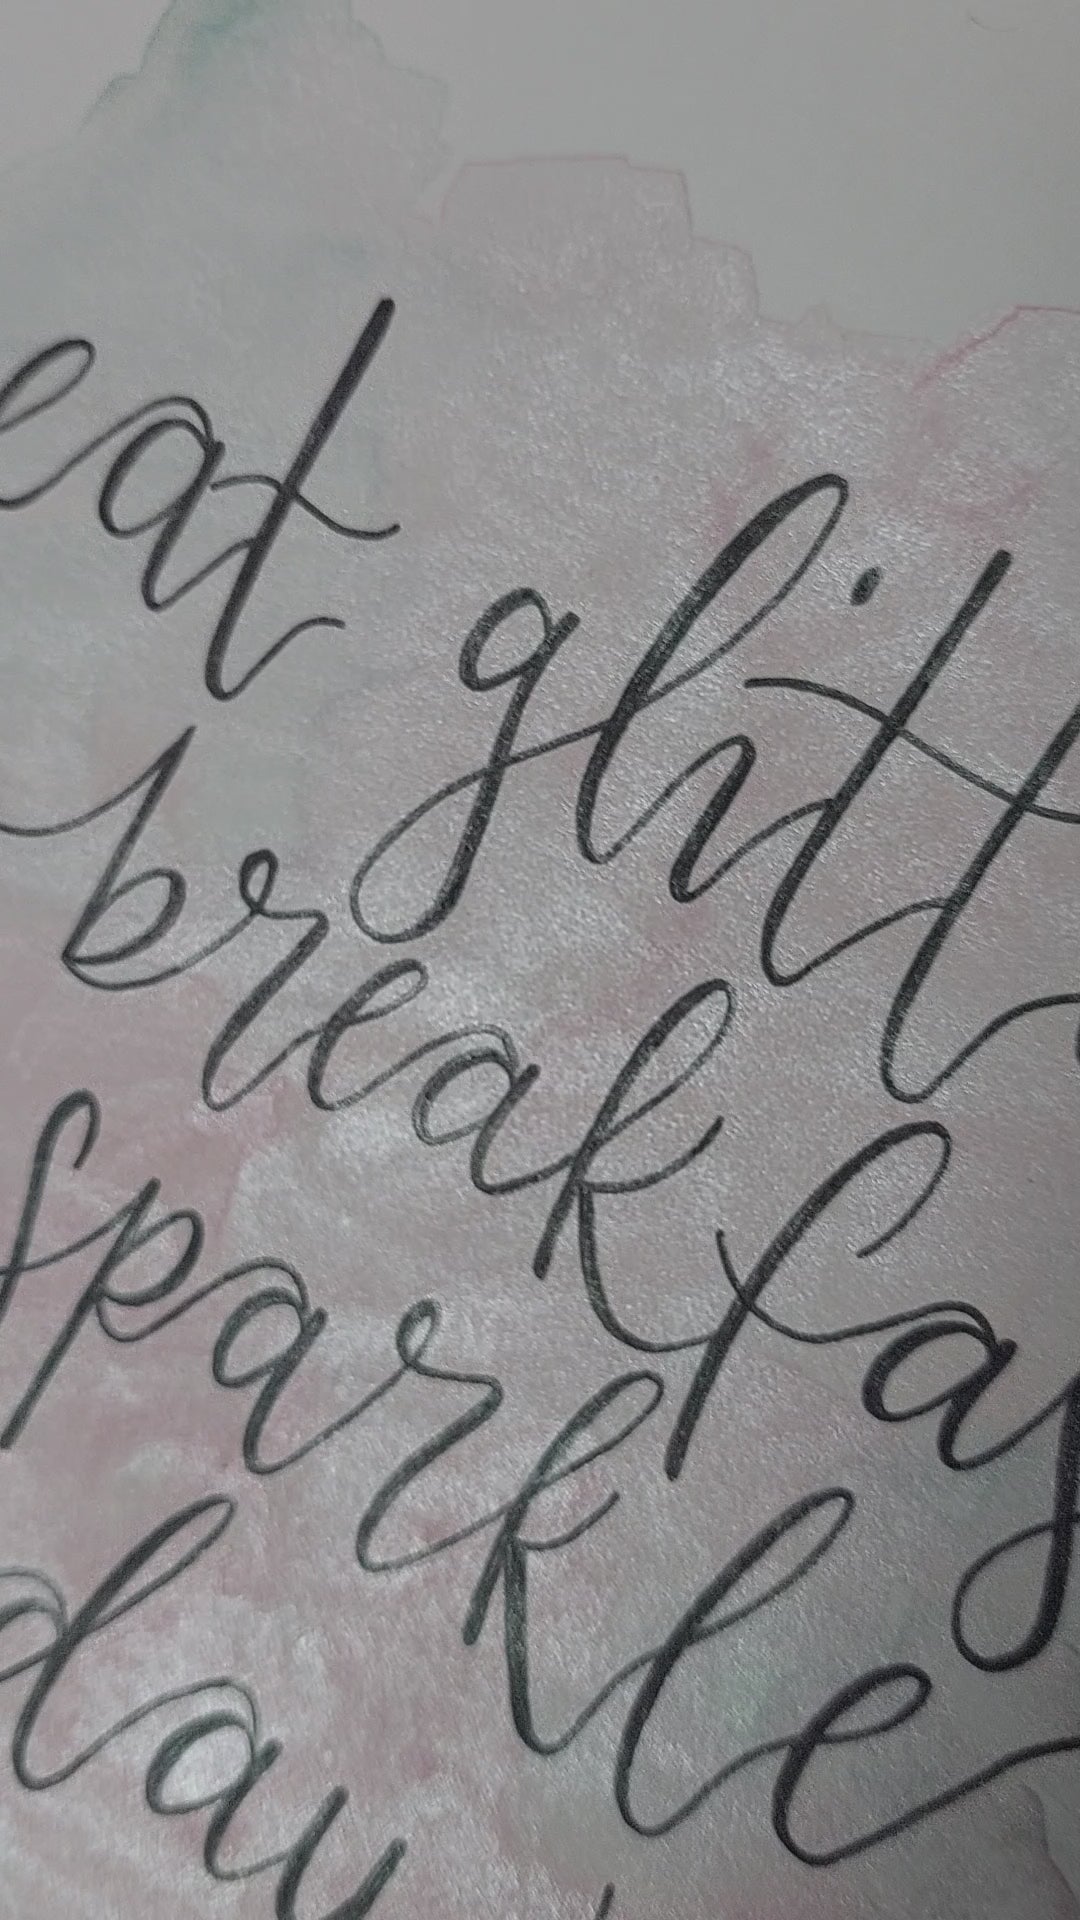 eat glitt
breakfas
sparkle
day